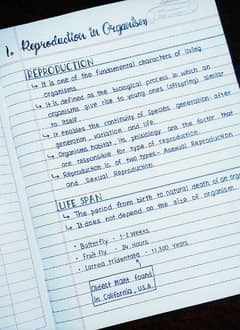 1. Reproduction in Organism
REPRODUCTION
↳ It is one of the fundamental characters of living
organisms.
↳ It is defined as the biological process in which an
organisms give rise to young ones (offspring) similar
to itself.
↳ It enables the continuity of species generation after
generation, variation and life.
↳ Organisms habitat, its physiology are the factor that
are responsible for type of reproduction.
↳ Reproduction is of two types - Asexual Reproduction
and Sexual Reproduction.
LIFE SPAN
↳ The period from birth to natural death of an org
↳ It does not depend on the size of organism
• Butterfly - Weeks
• Fruit fly - 24 Hours
• Larrea tridentate - 11,300 years
Oldest plant found
in California, U.S.A.